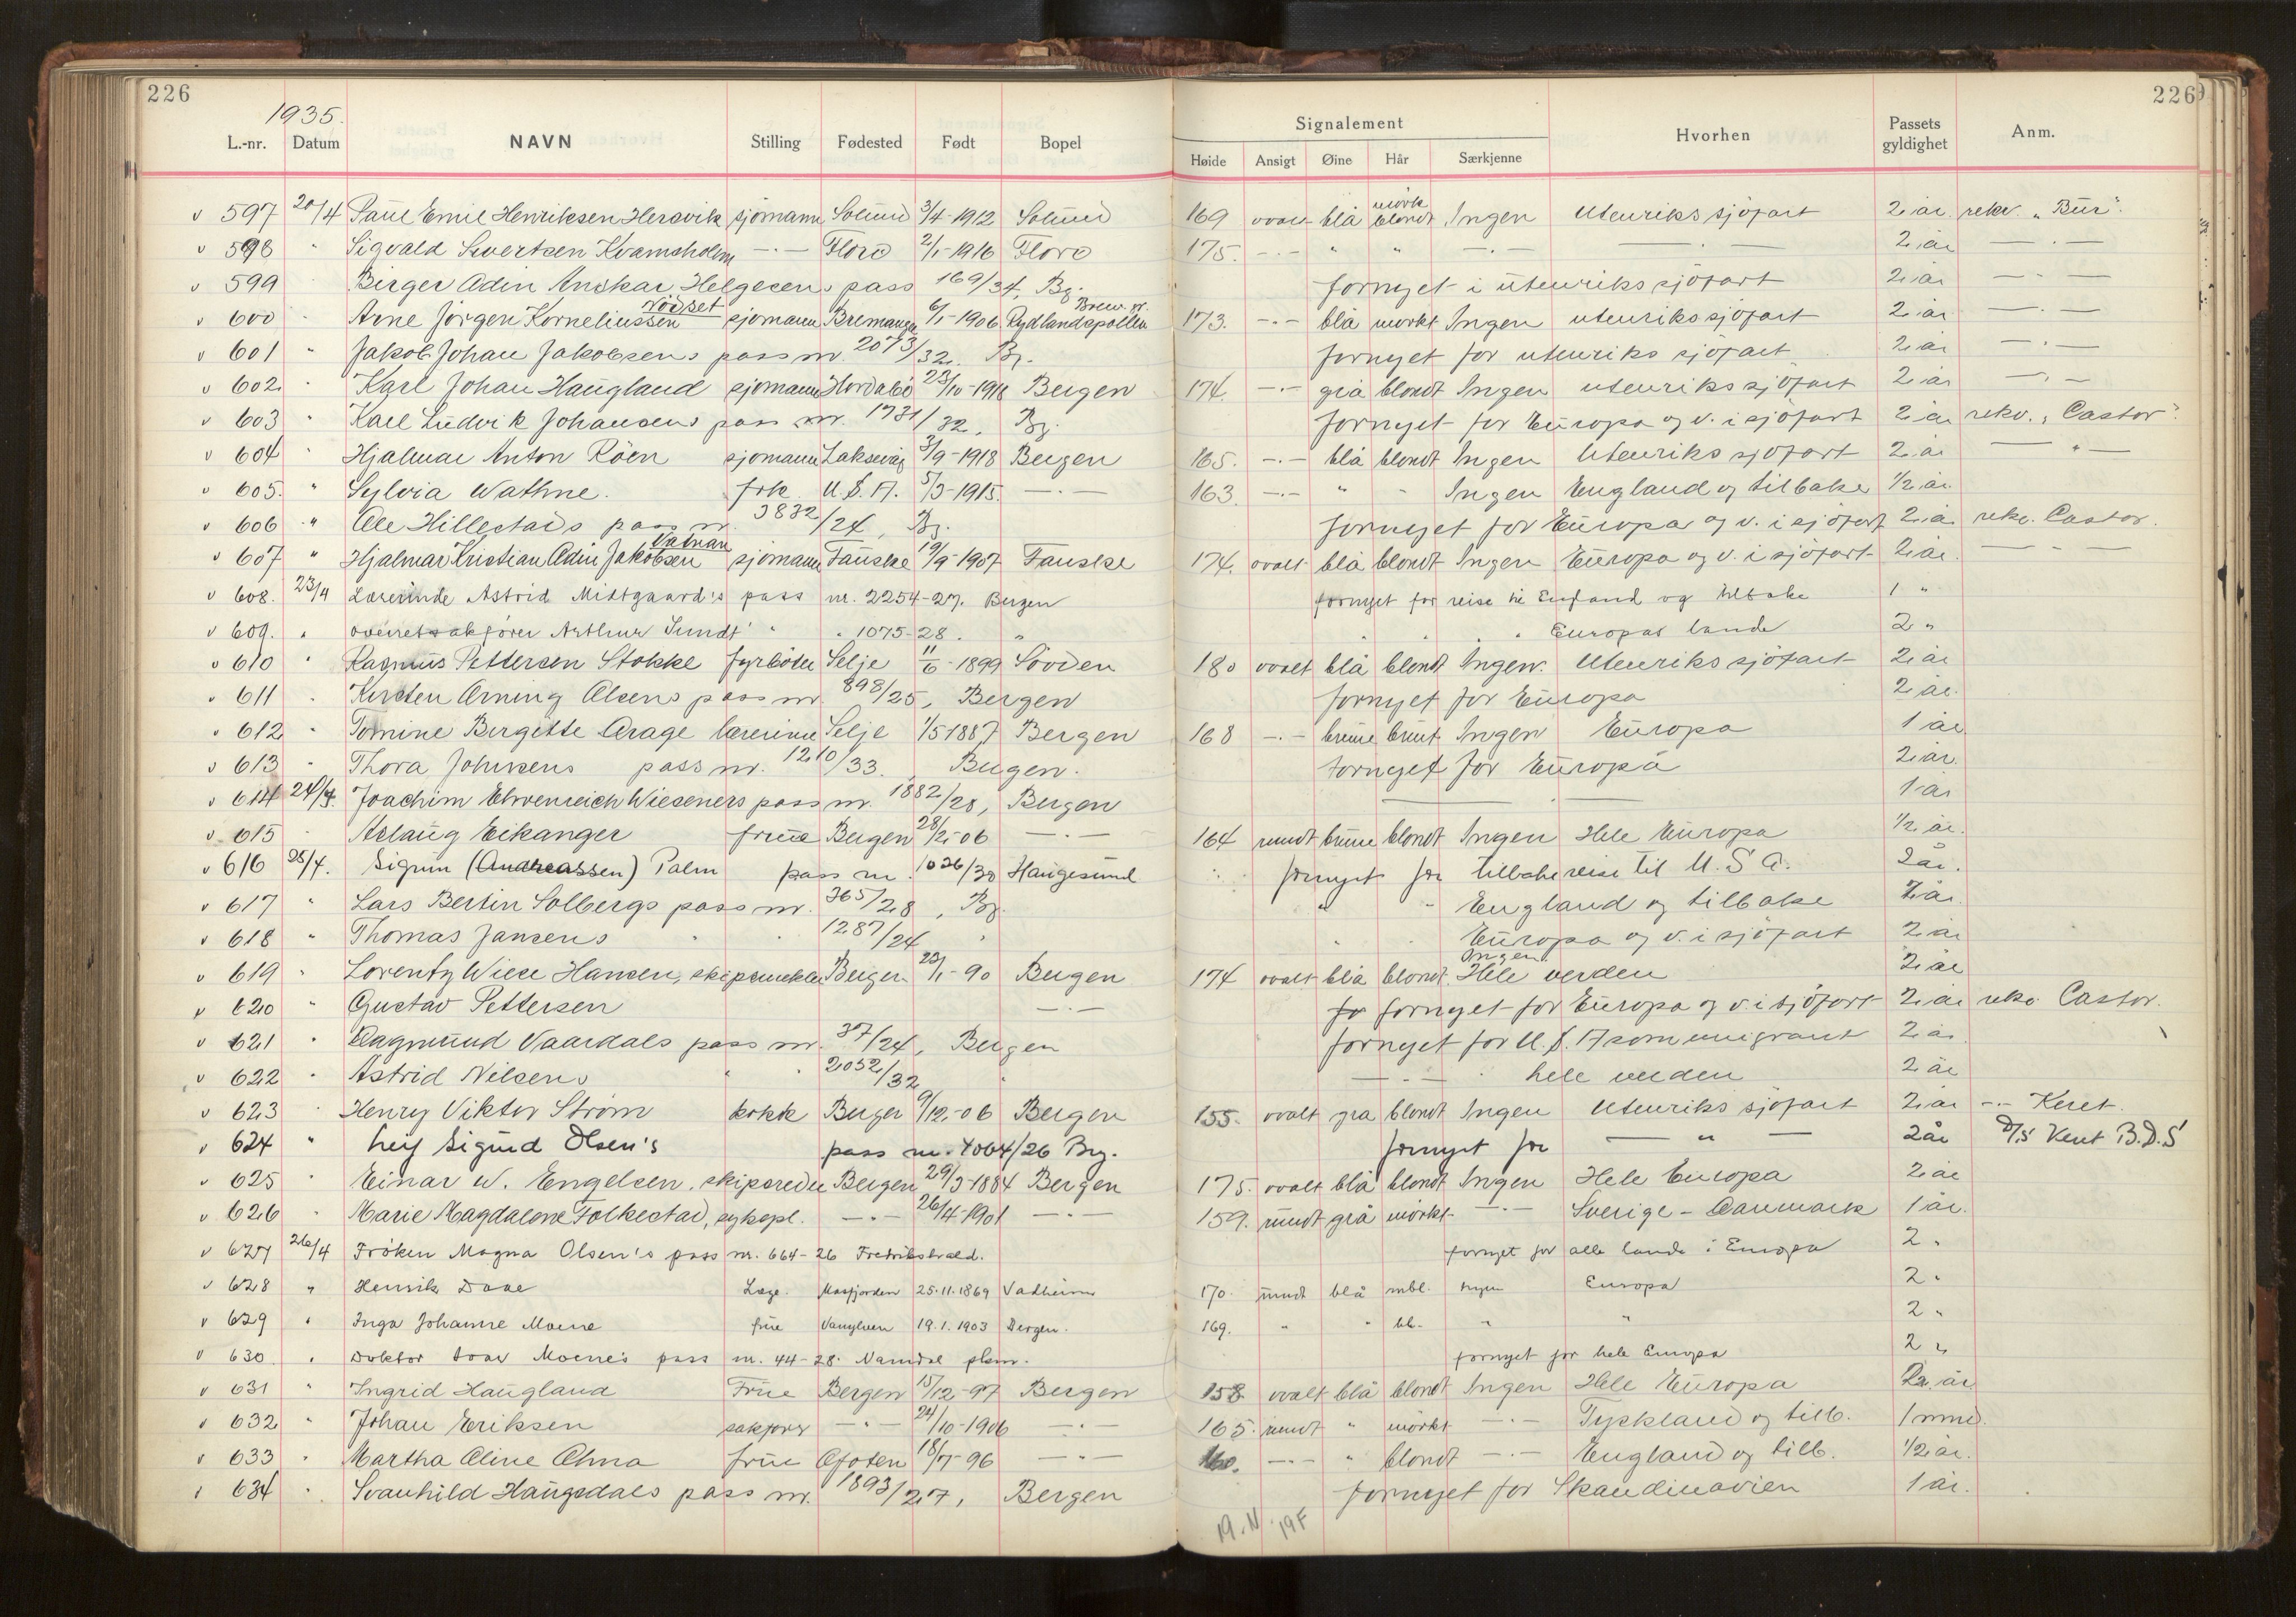 226
226
1935.
L.-nr. Datum NAVN Stilling Fødested Født Bopel Signalement Hvorhen Passets gyldighet Anm.
Høide Ansigt Øine Hår Særkjenne
v 597 20/4 Paul Emil Henriksen Hersvik sjømann Solund 3/4-1912 Solund 169 ovalt blå mørk blondt Ingen Utenriks sjöfart 2 år rekv. "Bur".
v 598 " Sigvald Sivertsen Kvamsholm —"— Florö 2/1-1916 Florö 175. —"— " " —"— —"— 2 år —"—
v 599 " Birger Odin Anskar Helgesens pass 169/34, Bg. fornyet i utenriks sjöfart 2 år —"—
v 600 " Arne Jörgen Korneliussen Nödset sjömann Bremanger 6/1-1906 Rydlandspollen Brem. pr. 173. —"— blå mörkt Ingen utenriks sjöfart 2 år —"—
v 601 " Jakob Johan Jakobsens pass nr. 2073/32, Bg. fornyet for utenriks sjöfart 2 år —"—
v 602 " Karl Johan Haugland sjömann Hordabö 23/10-1918 Bergen 174. —"— grå blondt Ingen utenriks sjöfart 2 år —"—
v 603 " Karl Ludvik Johansens pass nr. 1731/32, Bg. fornyet for Europa og v. i sjöfart 2 år rekv. "Castor".
v 604 " Hjalmar Anton Röen sjömann Laksevåg 3/9-1918 Bergen 165. —"— blå blondt Ingen Utenriks sjöfart 2 år —"—
v 605. " Sylvia Wathne. frk. U.S.A. 5/5-1915. —"— 163. —"— " " Ingen England og tilbake 1/2 år
v 606 " Ole Hillestads pass nr. 3832/24, Bg. fornyet for Europa og v. i sjöfart 2 år rekv. Castor.
v 607 " Hjalmar Kristian Odin Jakobsen Vatnan sjömann Fauske 19/9-1907 Fauske 174. ovalt blå blondt Ingen Europa og v. i sjöfart 2 år. —"—
v 608. 23/4 Lærerinde Astrid Midtgaard's pass nr. 2254-27. Bergen fornyet for reise til England og tilbake 1 "
v 609. " overretssakförer Arthur Sundt " " 1075-28. " " " " Europas lande 2 "
v 610 " Ragnus Pettersen Stokke fyrböter Selje 11/6-1899 Sövden 180 ovalt blå blondt Ingen. Utenriks sjöfart 2 år
v 611 " Kirsten Orning Olsens pass nr. 898/25, Bergen fornyet for Europa 2 år.
v 612 " Tomine Bergitte Arage lærerinne Selje 1/5 1887 Bergen 168 —"— brune brunt Ingen Europa 1 år
v 613 " Thora Johnsens pass nr. 1210/33. Bergen. fornyet for Europa 2 år.
v 614 24/4. Joachim Ehrenreich Wieseners pass nr. 1882/28, Bergen — — 1 år
v 615 " Aslaug Eikanger frue Bergen 28/2-06 —"— 164 rundt brune blondt Ingen Hele Europa 1/2 år.
v 616 25/4. Sigrun (Andreassen) Palm pass nr. 1026/30 Haugesund fornyet for tilbakereise til U.S.A. 2 år.
v 617 " Lars Bertin Solbergs pass nr. 365/28, Bg. " " England og tilbake 1 år.
v 618 " Thomas Jansens " " 1287/24 " " " Europa og v. i sjöfart 2 år
v 619 " Lorentz Wiese Hansen, skipsmekler Bergen 23/1-90 Bergen 174 ovalt blå blondt Ingen Hele verden 2 år
v 620 " Gustav Pettersen —"— fornyet for Europa og v. i sjöfart 2 år rekv. Castor.
v 621 " Dagmund Vaardals pass nr. 37/24, Bergen fornyet for U.S.A som emigrant 2 år
v 622 " Astrid Nilsens " " 2052/32 " —"— hele verden 2 år
v 623 " Henry Viktor Ström kokk Bergen 9/12-06 Bergen 155. ovalt grå blondt Ingen Utenriks sjöfart 2 år —"—
v 624 " Leif Sigurd Olsen's pass nr. 4064/26 Brg. fornyet for —"— 2 år D/S Vent B.D.S
v 625 " Einar W. Engelsen, skipsreder Bergen 29/3-1884 Bergen 175. ovalt blå blondt Ingen Hele Europa 2 år
v 626 " Marie Magdalene Folkestad, sykepl. —"— 26/4-1901 —"— 159. rundt grå mörkt —"— Sverige - Danmark 1 år.
v 627 26/4 Fröken Magna Olsen's pass nr. 664-26 Fredrikshald. fornyet for alle lande i Europa 2 "
v 628 " Henrik Daae Læge. Masfjorden 25.11.1869 Vadheim 170. rundt blå mbl. ingen Europa 2 "
v 629 " Inga Johanne Moene frue Vanylven 19.1.1903 Bergen. 169. " " bl. " " 2 "
v 630 " Doktor Moene's pass nr. 44-28. Namdal pkm. fornyet for hele Europa 2 "
v 631 " Ingrid Haugland Frue Bergen 15/12-97 Bergen 158 ovalt blå blondt Ingen Hele Europa 2 år
v 632 " Johan Eriksen sakförer —"— 24/10-1906 —"— 165. rundt " mörkt —"— Tyskland og tilb. 1 mnd.
v 633 " Martha Oline Ohna frue Ofoten 18/7-96 —"— 160. —"— " blondt —"— England og tilb. 1/2 år.
v 634 " Svanhild Haugsdals pass nr. 1893/27, Bergen fornyet for Skandinavien 1 år.
19.N 19F